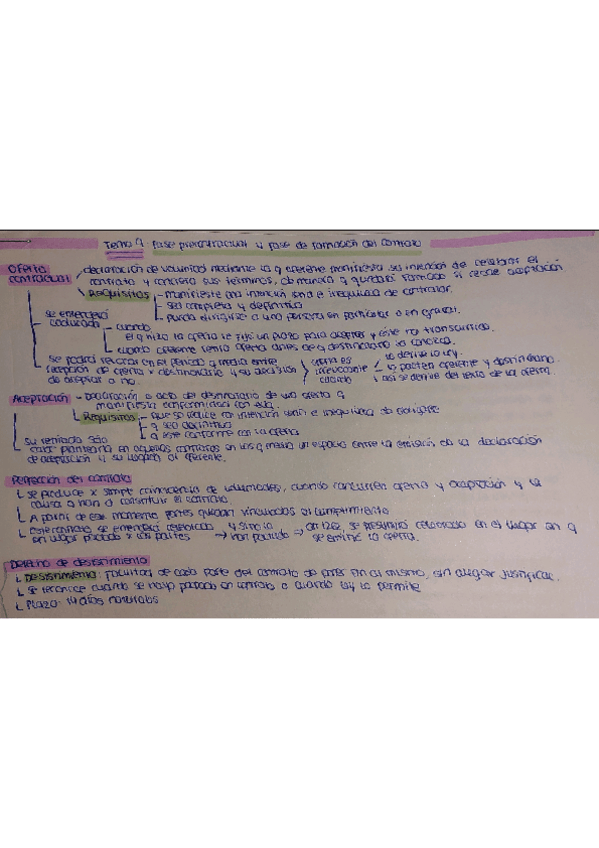 Tema 9 fase precontractual y fase de formación del contrato
Oferta contractual
declaración de voluntad mediante la q oferente manifiesta su intención de celebrar el
contrato y concreta sus términos, de manera q quedará formado si recae aceptación
Requisitos - manifieste una intención seria e inequívoca de contratar.
- sea completa y definitiva
- pueda dirigirse a una persona en particular o en general.
se entenderá caducada - cuando
el q hizo la oferta le fijó un plazo para aceptar y éste ha transcurrido.
cuando oferente retira oferta antes de q destinatario la conozca.
se podrá revocar en el período q media entre
recepción de oferta x destinatario y su decisión
de aceptar o no.
oferta es irrevocable cuando
lo derive la ley.
lo pacten oferente y destinatario.
así se derive del texto de la oferta.
Aceptación - declaración o acto del destinatario de una oferta q
manifiesta conformidad con ella.
Requisitos - que se realice con intención seria e inequívoca de obligarse
- q sea definitiva
- q esté conforme con la oferta
su retirada sólo
cabe plantearla en aquellos contratos en los q media un espacio entre la emisión de la declaración
de aceptación y su llegada al oferente.
Perfección del contrato
se produce x simple coincidencia de voluntades, cuando concurren oferta y aceptación y la
causa q han d constituir el contrato.
A partir de ese momento partes quedan vinculadas al cumplimiento
Este contrato se entenderá celebrado en lugar pactado x las partes
y si no lo han pactado → art 1262, se presumirá celebrado en el lugar en q
se emitió la oferta.
Derecho de desistimiento
Desistimiento: facultad de cada parte del contrato de poner fin al mismo, sin alegar justificac.
Se reconoce cuando se haya pactado en contrato o cuando ley lo permite
Plazo: 14 días naturales